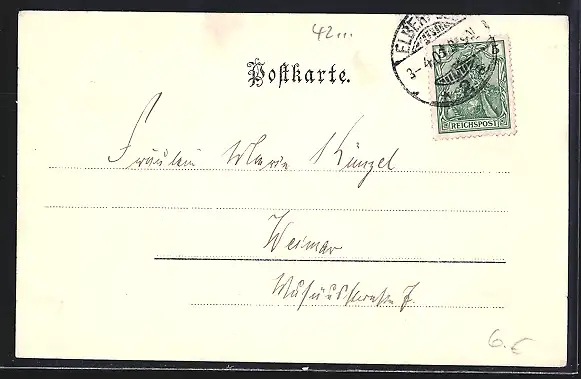 42...
Postkarte.
ELBERF
3-4
5
REICHSPOST
Fräulein Marie Künzel
Weimar
Musäusstraße 7.
6.€